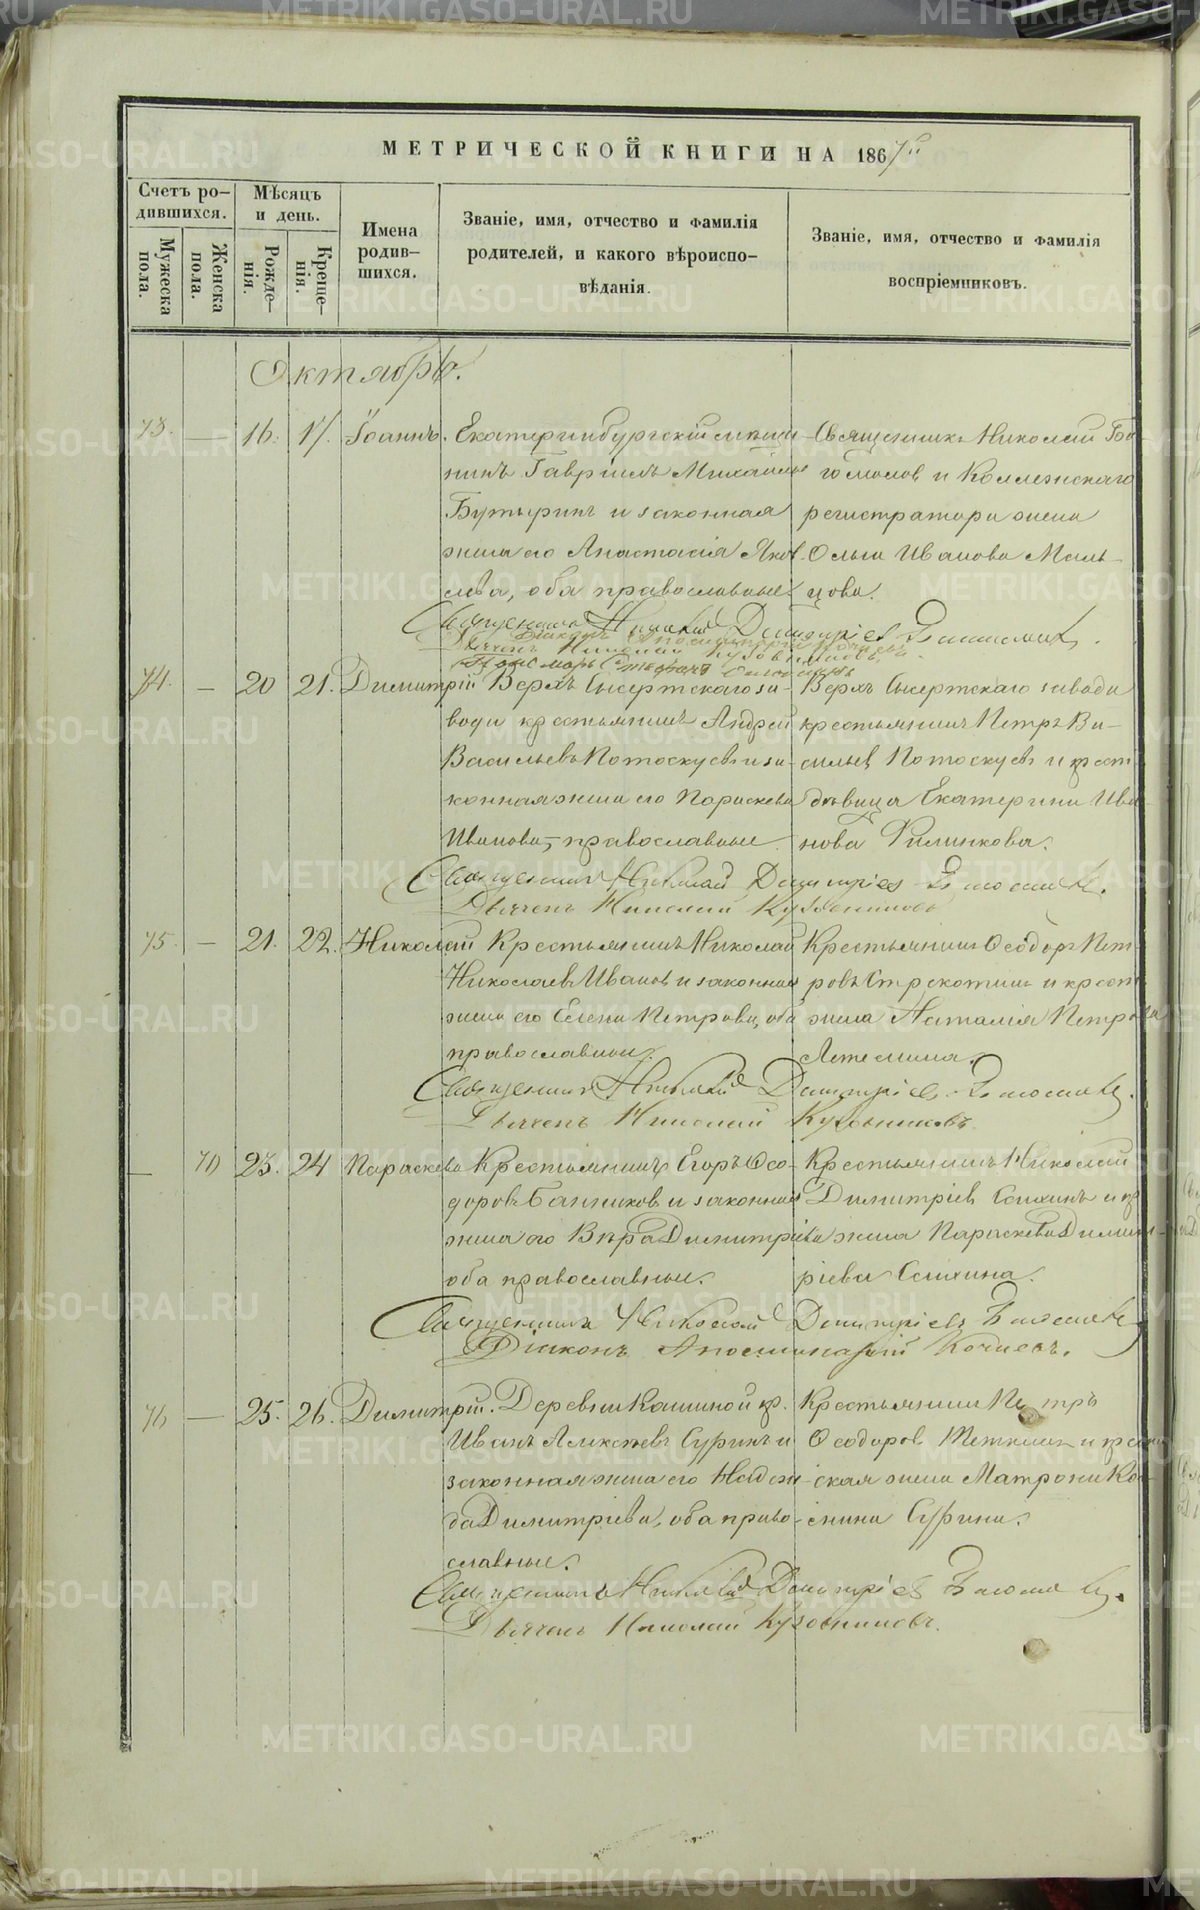 МЕТРИЧЕСКОЙ КНИГИ НА 1867й
Счетъ ро-
дившихся.
Мужеска
пола.
Женска
пола.
Мѣсяцъ
и день.
Рожде-
нія.
Креще-
нія.
Имена
родив-
шихся.
Званіе, имя, отчество и фамилія
родителей, и какого вѣроиспо-
вѣданія.
Званіе, имя, отчество и фамилія
воспріемниковъ.
Октябрь.
73. — 16. 17. Іоаннъ.
Екатеринбургскій
Гавріилъ Михайловъ
Бутыринъ и законная
жена его Анастасія Яков-
лева, оба православные.
Священникъ Николай
и Коллежскаго
регистратора жена
Ольга Иванова Маль-
цова.
Священникъ Николай Димитріев
Діаконъ Аполлинарій Кочневъ
Дьячекъ Николай Кузовниковъ
Пономарь Стефанъ
74. — 20 21. Димитрій
Верхъ Сысертскаго за-
вода крестьянинъ Андрей
Васильевъ Потоскуевъ и за-
конная жена его Параскева
Иванова, православные.
Верхъ Сысертскаго завода
крестьянинъ Петръ Ва-
сильев Потоскуевъ и крест.
дѣвица Екатерина Ива-
нова Филинкова.
Священникъ Николай Димитріев
Дьячекъ Николай Кузовниковъ
75. — 21. 22. Николай
Крестьянинъ Николай
Николаевъ Иванов и законная
жена его Елена Петрова, оба
православные.
Крестьянин Ѳеодоръ Пет-
ровъ Стрекотинъ и крест.
жена Наталія Петрова
Летемина.
Священник Николай Димитріев
Дьячекъ Николай Кузовниковъ.
— 70 23. 24 Параскева
Крестьянинъ Егоръ Ѳео-
доровъ Банников и законная
жена его Вѣра Димитріева
оба православные.
Крестьянинъ Николай
Димитріев и кр.
жена Параскева Димит-
ріева
Священникъ Николай Димитріевъ
Діаконъ Аполлинарій Кочневъ.
76 — 25. 26. Димитрій.
Деревни Кашиной кр.
Иванъ Алексѣевъ Суринъ и
законная жена его Надеж-
да Димитріева, оба право-
славные.
Крестьянин Петръ
Ѳеодоров и крестьян-
ская жена Матрона
Сурина.
Священникъ Николай Димитріев
Дьячекъ Николай Кузовниковъ.
METRIKI.GASO-URAL.RU